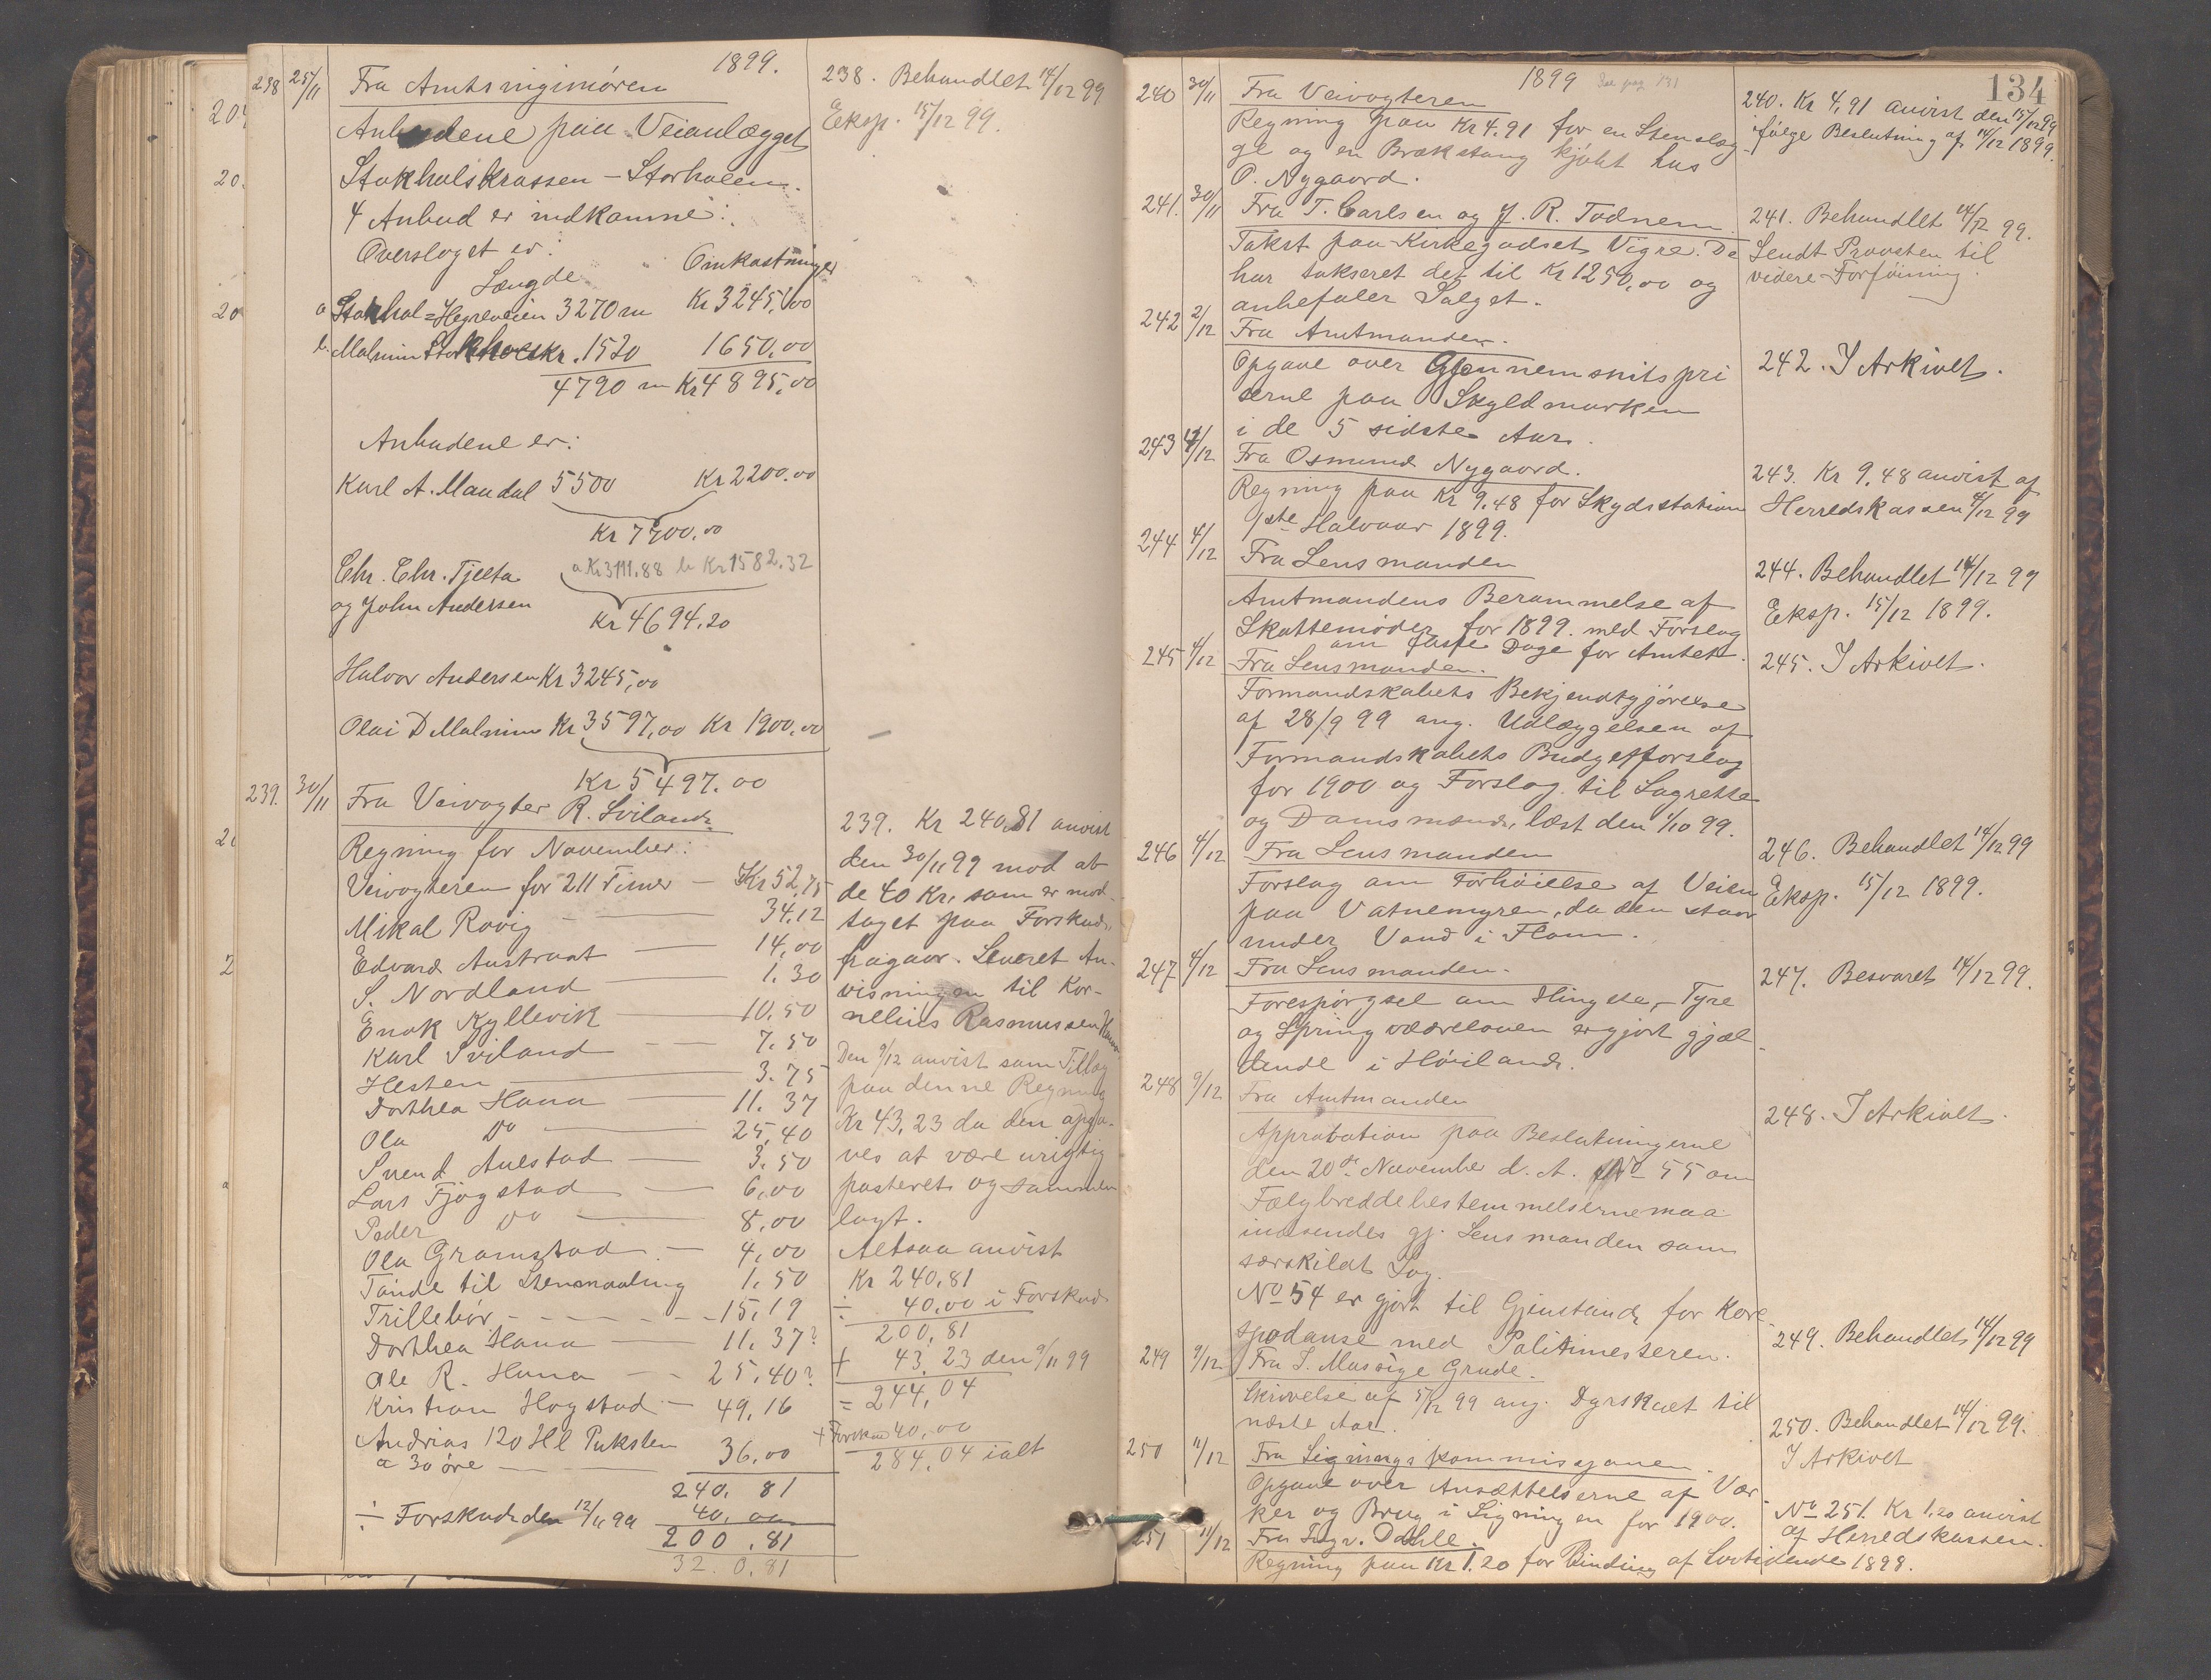 1899.
238 25/11 Fra Amtsinginiøren
Anbudene paa Veianlægget
Stokholskrossen - Storhalen.
4 Anbud er indkomne:
Overslaget er:
Længde Omkostninger
a Stokhol=Hegreveien 3270 m Kr 3245,00
b. Malmim Stokholskr. 1520 1650,00
4790 m Kr 4895,00
Anbudene er:
Karl A. Mandal 5500 Kr 2200.00
Kr 7700.00
Chr. Chr. Tjelta a Kr 3111.88 b Kr 1582.32
og John Andersen Kr 4694.20
Halvor Andersen Kr 3245,00
Olai D Malmim Kr 3597,00 Kr 1900,00
Kr 5497.00
239. 30/11 Fra Veivogter R. Sviland.
Regning for November:
Veivogteren for 211 Timer - Kr 52,75
Mikal Rovig - 34,12
Edvard Austraat - 14,00
S. Nordland - 1.30
Enok Kyllevik - 10,50
Karl Sviland - 7.50
Hesten - 3.75
Dorthea Hana - 11.37
Ola Do - 25,40
Svend Aulestad - 3.50
Lars Fjogstad - 6,00
Peder Do - 8,00
Ola Gramstad - 4,00
Tønde til Stenmaaling 1.50
Trillebør - 15,19
Dorthea Hana - 11.37?
Ole R. Hana - 25,40?
Kristian Hogstad - 49,16
Andrias 120 Hl Puksten
a 30 øre - 36,00
240.81
÷ Forskud den 12/11 99 40,00
200.81
32.0.81
238. Behandlet 14/12 99
Eksp. 15/12 99.
239. Kr 240,81 anvist
den 30/11 99 mod at
de 40 Kr. som er mod-
taget paa Forskud.
fragaar. Leveret An-
visningen til Kor-
nelius Rasmussen Hana
Den 9/12 anvist som Tillæg
paa denne Regning
Kr 43,23 da den opga-
ves at være urigtig
posteret og sammen
lagt.
Altsaa anvist
Kr 240,81
÷ 40,00 i Forskud
200,81
+ 43,23 den 9/11 99
= 244,04
+ Forskud 40,00
284,04 ialt
1899 Se pag 131
134
240 30/11 Fra Veivogteren
Regning paa Kr 4.91 for en Stenslæg-
ge og en Brækstang kjøbt hos
O. Nygaard.
241. 30/11 Fra T. Carlsen og J. R. Todnem.
Takst paa Kirkegodset Vigre. De
har takseret det til Kr 1250,00 og
anbefaler Salget.
242 2/12 Fra Amtmanden.
Opgave over Gjennemsnitspri
serne paa Skyldmarken
i de 5 sidste Aar.
243 4/12 Fra Osmund Nygaard.
Regning paa Kr 9.48 for Skydsstation
1ste Halvaar 1899.
244 4/12 Fra Lensmanden
Amtmandens Berammelse af
Skattemøder for 1899 med Forslag
om faste Dage for Amtet.
245 4/12 Fra Lensmanden.
Formandskabets Bekjendtgjørelse
af 28/9 99 ang. Udlæggelsen af
Formandskabets Budgetforslag
for 1900 og Forslag til Lagrette
og Domsmænd, læst den 1/10 99.
246 4/12 Fra Lensmanden
Forslag om Forhøielse af Veien
paa Vatnemyren, da den staar
under Vand i Flom.
247 4/12 Fra Lensmanden.
Forespørgsel om Hingste,- Tyre
og Springvædreloven er gjort gjæl-
dende i Høiland.
248 9/12 Fra Amtmanden
Approbation paa Beslutningerne
den 20de November d. A. No 55 om
Fælgbreddebestemmelserne maa
indsendes gj. Lensmanden som
særskilat Sag.
No 54 er gjort til Gjenstand for Kore-
spodanse med Politimesteren.
249 9/12 Fra S. Mossige Grude.
Skrivelse af 5/12 99 ang. Dyrskuet til
næste Aar.
250 11/12 Fra Ligningskommissjonen.
Opgave over Ansættelserne af Vær-
ker og Brug i Ligningen for 1900.
251 11/12 Fra Fogr. Dahle.
Regning paa Kr 1.20 for Binding af Lovtidende 1898.
240. Kr 4,91 anvist den 15/12 99
ifølge Beslutning af 14/12 1899.
241. Behandlet 14/12 99.
Sendt Provsten til
videre Forføining.
242. I Arkivet.
243. Kr 9,48 anvist af
Herredskassen 4/12 99
244. Behandlet 14/12 99
Eksp. 15/12 1899.
245. I Arkivet.
246. Behandlet 14/12 99
Eksp. 15/12 1899.
247. Besvaret 14/12 99.
248. I Arkivet.
249. Behandlet 14/12 99
250. Behandlet 14/12 99.
I Arkivet
No 251. Kr 1,20 anvist
af Herredskassen.